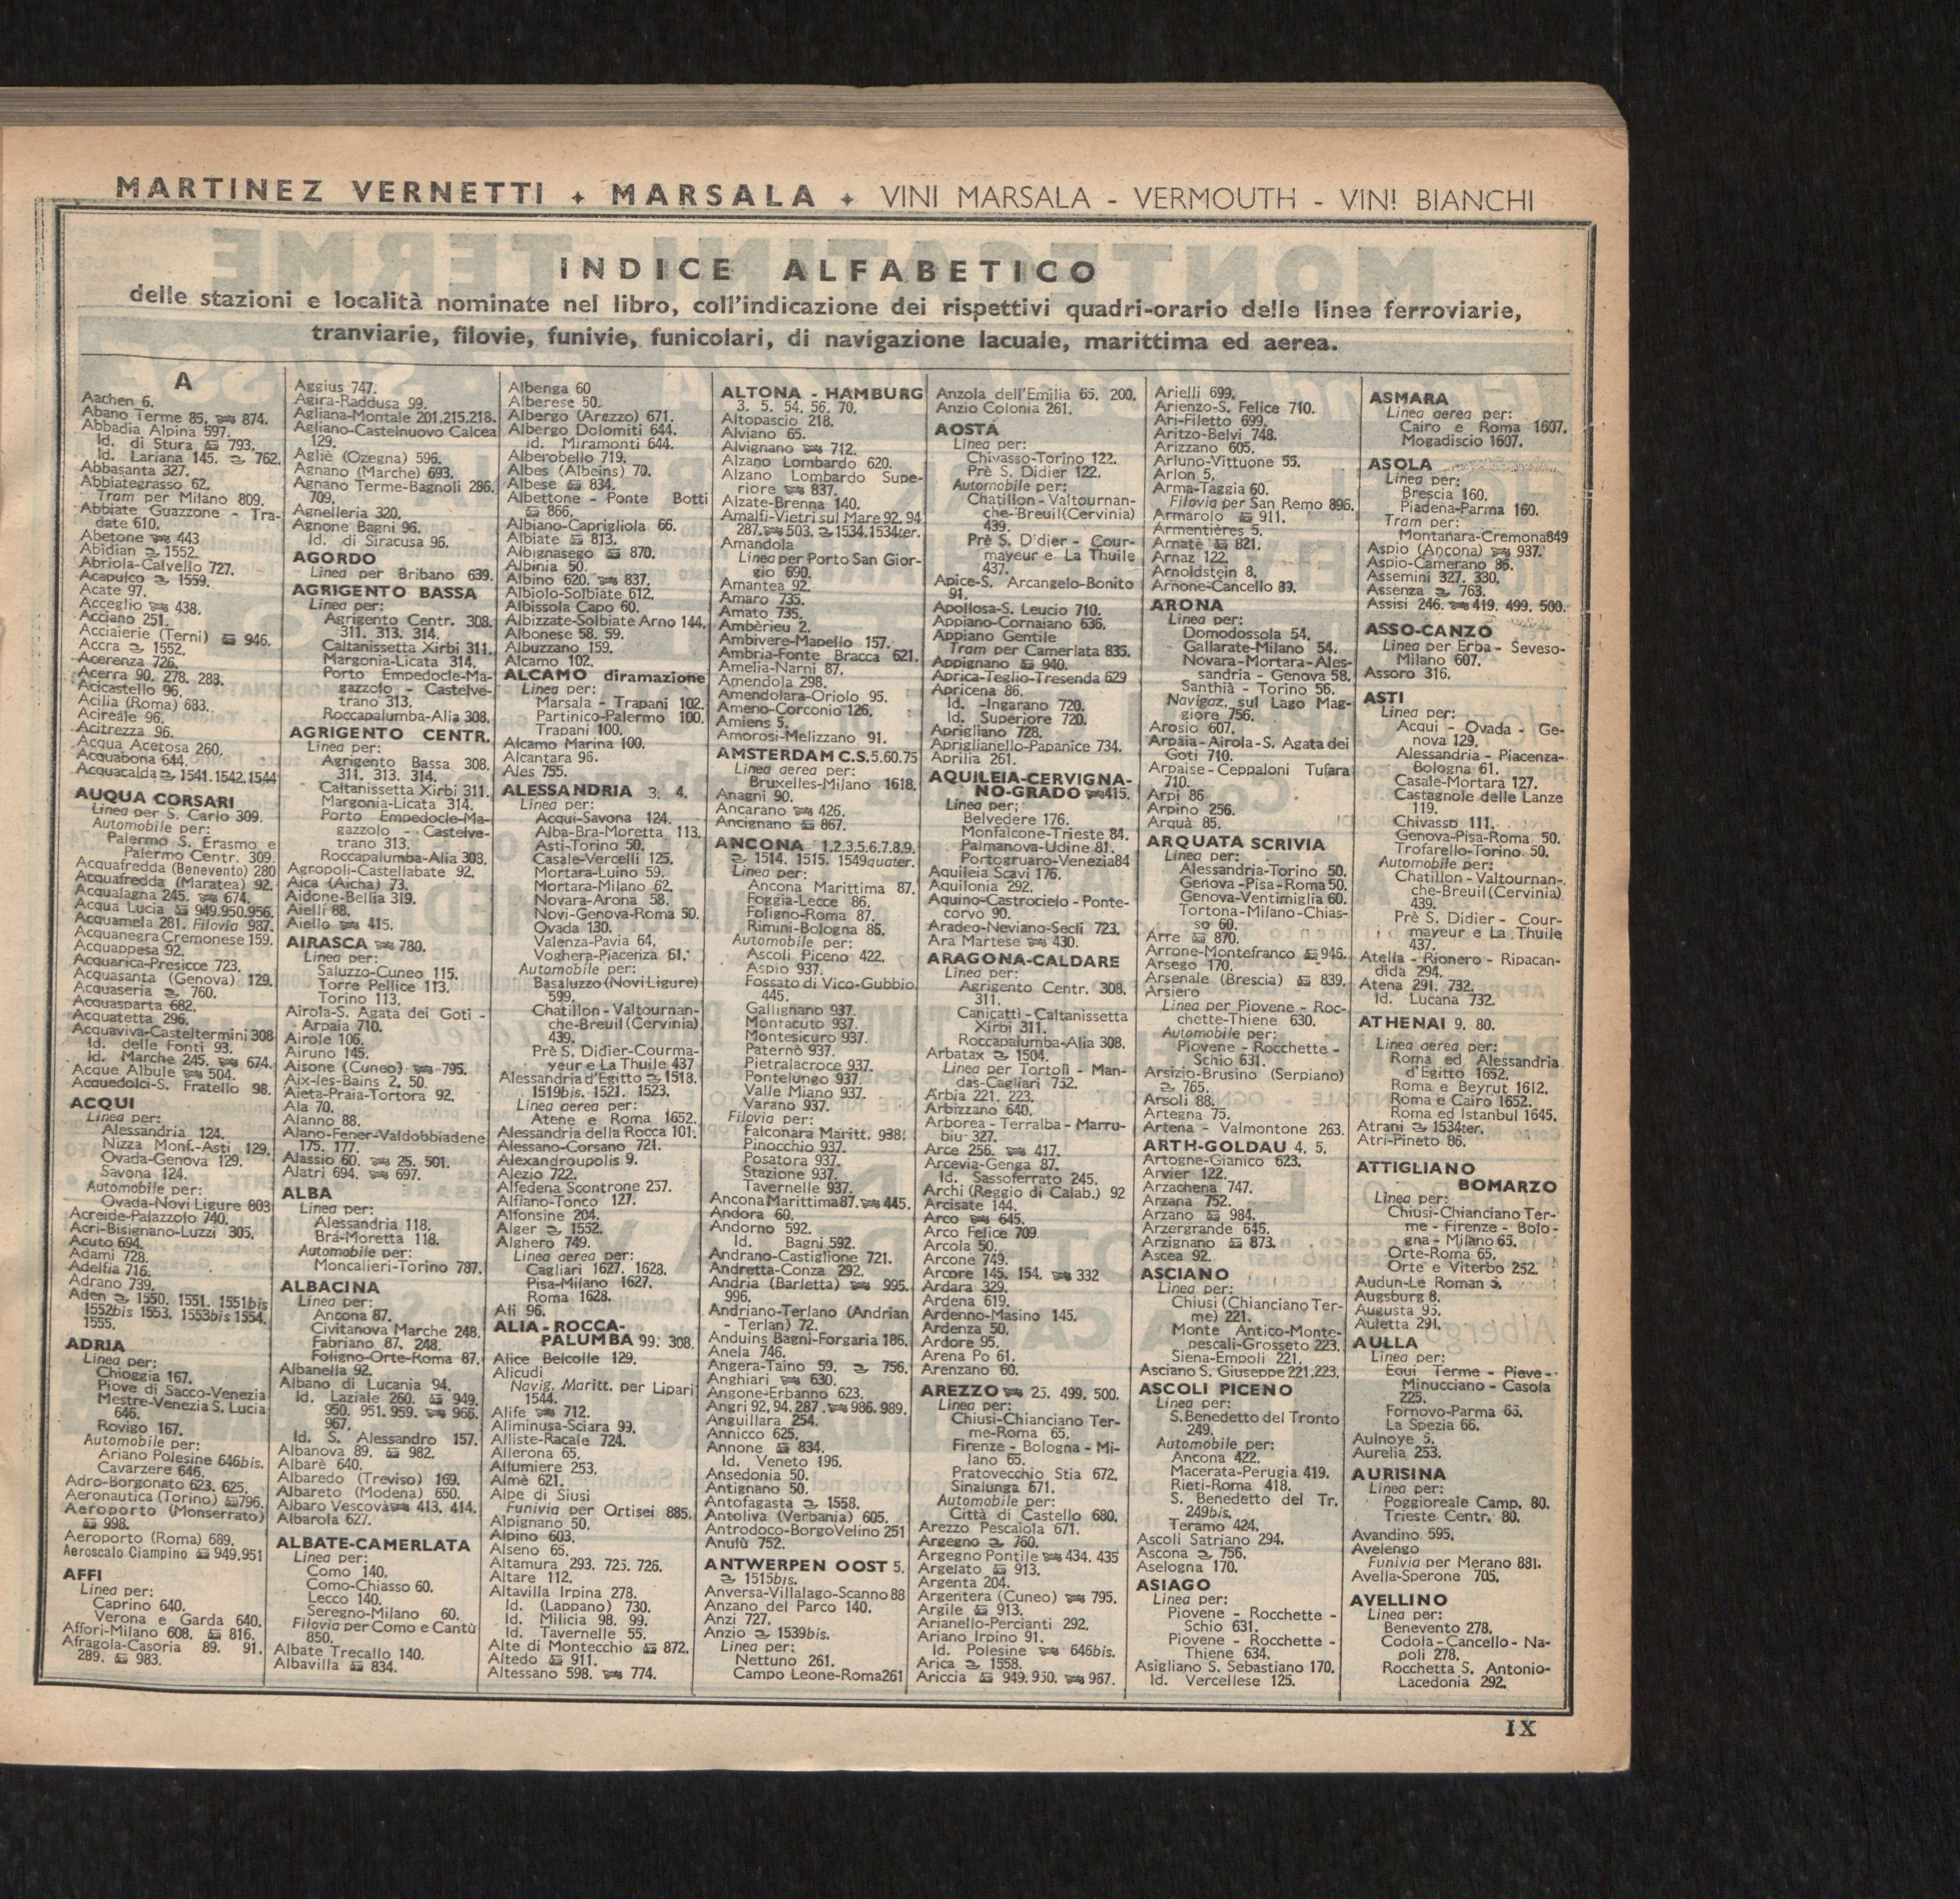 MARTINEZ VERNETTI + MARSALA + VINI MARSALA - VERMOUTH - VIN! BIANCHI
INDICE ALFABETICO
delle stazioni e località nominate nel libro, coll'indicazione dei rispettivi quadri-orario delle linee ferroviarie,
tranviarie, filovie, funivie, funicolari, di navigazione lacuale, marittima ed aerea.
A
Aachen 6.
Abano Terme 85, 874.
Abbadia Alpina 597.
Id. di Stura 793.
Id. Lariana 145. 762.
Abbasanta 327.
Abbiategrasso 62.
Tram per Milano 809.
Abbiate Guazzone - Tra-
date 610.
Abetone 443
Abidian 1552.
Abriola-Calvello 727.
Acapulco 1559.
Acate 97.
Acceglio 438.
Acciano 251.
Acciaierie (Terni) 946.
Accra 1552.
Acerenza 726.
Acerra 90. 278. 283.
Acicastello 96.
Acilia (Roma) 683.
Acireale 96.
Acitrezza 96.
Acqua Acetosa 260.
Acquabona 644.
Acquacalda 1541.1542.1544
AUQUA CORSARI
Linea per S. Carlo 309.
Automobile per:
Palermo S. Erasmo e
Palermo Centr. 309.
Acquafredda (Benevento) 280
Acquafredda (Maratea) 92.
Acqualagna 245. 674.
Acqua Lucia 949.950.956.
Acquamela 281. Filovia 987.
Acquanegra Cremonese 159.
Acquappesa 92.
Acquarica-Presicce 723.
Acquasanta (Genova) 129.
Acquaseria 760.
Acquasparta 682.
Acquatetta 296.
Acquaviva-Casteltermini 308
Id. delle Fonti 93.
Id. Marche 245. 674.
Acque Albule 504.
Acquedolci-S. Fratello 98.
ACQUI
Linea per:
Alessandria 124.
Nizza Monf.-Asti 129.
Ovada-Genova 129.
Savona 124.
Automobile per:
Ovada-Novi Ligure 803
Acreide-Palazzolo 740.
Acri-Bisignano-Luzzi 305.
Acuto 694.
Adami 728.
Adelfia 716.
Adrano 739.
Aden 1550. 1551. 1551bis
1552bis 1553. 1553bis 1554.
1555.
ADRIA
Linea per:
Chioggia 167.
Piove di Sacco-Venezia
Mestre-Venezia S. Lucia
646.
Rovigo 167.
Automobile per:
Ariano Polesine 646bis.
Cavarzere 646.
Adro-Borgonato 623. 625.
Aeronautica (Torino) 796.
Aeroporto (Monserrato)
998.
Aeroporto (Roma) 689.
Aeroscalo Ciampino 949.951
AFFI
Linea per:
Caprino 640.
Verona e Garda 640.
Affori-Milano 608. 816.
Afragola-Casoria 89. 91.
289. 983.
Aggius 747.
Agira-Raddusa 99.
Agliana-Montale 201.215.218.
Agliano-Castelnuovo Calcea
129.
Agliè (Ozegna) 596.
Agnano (Marche) 693.
Agnano Terme-Bagnoli 286.
709.
Agnelleria 320.
Agnone Bagni 96.
Id. di Siracusa 96.
AGORDO
Linea per Bribano 639.
AGRIGENTO BASSA
Linea per:
Agrigento Centr. 308.
311. 313. 314.
Caltanissetta Xirbi 311.
Margonia-Licata 314.
Porto Empedocle-Ma-
gazzolo - Castelve-
trano 313.
Roccapalumba-Alia 308.
AGRIGENTO CENTR.
Linea per:
Agrigento Bassa 308.
311. 313. 314.
Caltanissetta Xirbi 311.
Margonia-Licata 314.
Porto Empedocle-Ma-
gazzolo - Castelve-
trano 313.
Roccapalumba-Alia 308.
Agropoli-Castellabate 92.
Aica (Aicha) 73.
Aidone-Bellia 319.
Aielli 88.
Aiello 415.
AIRASCA 780.
Linea per:
Saluzzo-Cuneo 115.
Torre Pellice 113.
Torino 113.
Airola-S. Agata dei Goti -
Arpaia 710.
Airole 106.
Airuno 145.
Aisone (Cuneo) 795.
Aix-les-Bains 2. 50.
Aieta-Praia-Tortora 92.
Ala 70.
Alanno 88.
Alano-Fener-Valdobbiadene
175. 177.
Alassio 60. 25. 501.
Alatri 694. 697.
ALBA
Linea per:
Alessandria 118.
Bra-Moretta 118.
Automobile per:
Moncalieri-Torino 787.
ALBACINA
Linea per:
Ancona 87.
Civitanova Marche 248.
Fabriano 87. 248.
Foligno-Orte-Roma 87.
Albanella 92.
Albano di Lucania 94.
Id. Laziale 260. 949.
950. 951. 959. 966.
967.
Id. S. Alessandro 157.
Albanova 89. 982.
Albarè 640.
Albaredo (Treviso) 169.
Albareto (Modena) 650.
Albaro Vescovà 413. 414.
Albarola 627.
ALBATE-CAMERLATA
Linea per:
Como 140.
Como-Chiasso 60.
Lecco 140.
Seregno-Milano 60.
Filovia per Como e Cantù
850.
Albate Trecallo 140.
Albavilla 834.
Albenga 60
Alberese 50.
Albergo (Arezzo) 671.
Albergo Dolomiti 644.
id. Miramonti 644.
Alberobello 719.
Albes (Albeins) 70.
Albese 834.
Albettone - Ponte Botti
866.
Albiano-Caprigliola 66.
Albiate 813.
Albignasego 870.
Albinia 50.
Albino 620. 837.
Albiolo-Solbiate 612.
Albissola Capo 60.
Albizzate-Solbiate Arno 144.
Albonese 58. 59.
Albuzzano 159.
Alcamo 102.
ALCAMO diramazione
Linea per:
Marsala - Trapani 102.
Partinico-Palermo 100.
Trapani 100.
Alcamo Marina 100.
Alcantara 96.
Ales 755.
ALESSANDRIA 3. 4.
Linea per:
Acqui-Savona 124.
Alba-Bra-Moretta 113.
Asti-Torino 50.
Casale-Vercelli 125.
Mortara-Luino 59.
Mortara-Milano 62.
Novara-Arona 58.
Novi-Genova-Roma 50.
Ovada 130.
Valenza-Pavia 64.
Voghera-Piacenza 61.
Automobile per:
Basaluzzo (Novi Ligure)
599.
Chatillon-Valtournan-
che-Breuil (Cervinia)
439.
Prè S. Didier-Courma-
yeur e La Thuile 437
Alessandria d'Egitto 1518.
1519bis. 1521. 1523.
Linea aerea per:
Atene e Roma 1652.
Alessandria della Rocca 101.
Alessano-Corsano 721.
Alexandroupolis 9.
Alezio 722.
Alfedena Scontrone 257.
Alfiano-Tonco 127.
Alfonsine 204.
Alger 1552.
Alghero 749.
Linea aerea per:
Cagliari 1627. 1628.
Pisa-Milano 1627.
Roma 1628.
Alì 96.
ALIA - ROCCA-
PALUMBA 99. 308.
Alice Belcolle 129.
Alicudi
Navig. Maritt. per Lipari
1544.
Alife 712.
Aliminusa-Sciara 99.
Alliste-Racale 724.
Allerona 65.
Allumiere 253.
Almè 621.
Alpe di Siusi
Funivia per Ortisei 885.
Alpignano 50.
Alpino 603.
Alseno 65.
Altamura 293. 725. 726.
Altare 112.
Altavilla Irpina 278.
Id. (Lappano) 730.
Id. Milicia 98. 99.
Id. Tavernelle 55.
Alte di Montecchio 872.
Altedo 911.
Altessano 598. 774.
ALTONA - HAMBURG
3. 5. 54. 56. 70.
Altopascio 218.
Alviano 65.
Alvignano 712.
Alzano Lombardo 620.
Alzano Lombardo Supe-
riore 837.
Alzate-Brenna 140.
Amalfi-Vietri sul Mare 92. 94.
287. 503. 1534.1534ter.
Amandola
Linea per Porto San Gior-
gio 690.
Amantea 92.
Amaro 735.
Amato 735.
Ambèrieu 2.
Ambivere-Mapello 157.
Ambria-Fonte Bracca 621.
Amelia-Narni 87.
Amendola 298.
Amendolara-Oriolo 95.
Ameno-Corconio 126.
Amiens 5.
Amorosi-Melizzano 91.
AMSTERDAM C.S. 5.60.75
Linea aerea per:
Bruxelles-Milano 1618.
Anagni 90.
Ancarano 426.
Ancignano 867.
ANCONA 1.2.3.5.6.7.8.9.
1514. 1515. 1549quater.
Linea per:
Ancona Marittima 87.
Foggia-Lecce 86.
Foligno-Roma 87.
Rimini-Bologna 86.
Automobile per:
Ascoli Piceno 422.
Aspio 937.
Fossato di Vico-Gubbio
445.
Gallignano 937.
Montacuto 937.
Montesicuro 937.
Paterno 937.
Pietralacroce 937.
Pontelungo 937.
Valle Miano 937.
Varano 937.
Filovia per:
Falconara Maritt. 938.
Pinocchio 937.
Posatora 937.
Stazione 937.
Tavernelle 937.
Ancona Marittima 87. 445.
Andora 60.
Andorno 592.
Id. Bagni 592.
Andrano-Castiglione 721.
Andretta-Conza 292.
Andria (Barletta) 995.
996.
Andriano-Terlano (Andrian
- Terlan) 72.
Anduins Bagni-Forgaria 186.
Anela 746.
Angera-Taino 59. 756.
Anghiari 630.
Angone-Erbanno 623.
Angri 92. 94. 287. 986. 989.
Anguillara 254.
Annicco 625.
Annone 834.
Id. Veneto 196.
Ansedonia 50.
Antignano 50.
Antofagasta 1558.
Antoliva (Verbania) 605.
Antrodoco-BorgoVelino 251
Anulù 752.
ANTWERPEN OOST 5.
1515bis.
Anversa-Villalago-Scanno 88
Anzano del Parco 140.
Anzi 727.
Anzio 1539bis.
Linea per:
Nettuno 261.
Campo Leone-Roma261
Anzola dell'Emilia 65. 200.
Anzio Colonia 261.
AOSTA
Linea per:
Chivasso-Torino 122.
Prè S. Didier 122.
Automobile per:
Chatillon-Valtournan-
che-Breuil (Cervinia)
439.
Prè S. D'dier - Cour-
mayeur e La Thuile
437.
Apice-S. Arcangelo-Bonito
91.
Apollosa-S. Leucio 710.
Appiano-Cornaiano 636.
Appiano Gentile
Tram per Camerlata 835.
Appignano 940.
Aprica-Teglio-Tresenda 629
Apricena 86.
Id. -Ingarano 720.
Id. Superiore 720.
Aprigliano 728.
Apriglianello-Papanice 734.
Aprilia 261.
AQUILEIA-CERVIGNA-
NO-GRADO 415.
Linea per:
Belvedere 176.
Monfalcone-Trieste 84.
Palmanova-Udine 81.
Portogruaro-Venezia84
Aquileia Scavi 176.
Aquilonia 292.
Aquino-Castrocielo - Ponte-
corvo 90.
Aradeo-Neviano-Seclì 723.
Ara Martese 430.
ARAGONA-CALDARE
Linea per:
Agrigento Centr. 308.
311.
Canicattì - Caltanissetta
Xirbi 311.
Roccapalumba-Alia 308.
Arbatax 1504.
Linea per Tortolì - Man-
das-Cagliari 752.
Arbia 221. 223.
Arbizzano 640.
Arborea - Terralba - Marru-
biu 327.
Arce 256. 417.
Arcevia-Genga 87.
Id. Sassoferrato 245.
Archi (Reggio di Calab.) 92
Arcisate 144.
Arco 645.
Arco Felice 709.
Arcola 50.
Arcone 749.
Arcore 145. 154. 332
Ardara 329.
Ardena 619.
Ardenno-Masino 145.
Ardenza 50.
Ardore 95.
Arena Po 61.
Arenzano 60.
AREZZO 25. 499. 500.
Linea per:
Chiusi-Chianciano Ter-
me-Roma 65.
Firenze - Bologna - Mi-
lano 65.
Pratovecchio Stia 672.
Sinalunga 671.
Automobile per:
Città di Castello 680.
Arezzo Pescaiola 671.
Argegno 760.
Argegno Pontile 434. 435
Argelato 913.
Argenta 204.
Argentera (Cuneo) 795.
Argile 913.
Arianello-Percianti 292.
Ariano Irpino 91.
Id. Polesine 646bis.
Arica 1558.
Ariccia 949. 950. 967.
Arielli 699.
Arienzo-S. Felice 710.
Ari-Filetto 699.
Aritzo-Belvi 748.
Arizzano 605.
Arluno-Vittuone 55.
Arlon 5.
Arma-Taggia 60.
Filovia per San Remo 896.
Armarolo 911.
Armentières 5.
Arnatè 821.
Arnaz 122.
Arnoldstein 8.
Arnone-Cancello 89.
ARONA
Linea per:
Domodossola 54.
Gallarate-Milano 54.
Novara-Mortara-Ales-
sandria - Genova 58.
Santhià - Torino 56.
Navigaz. sul Lago Mag-
giore 756.
Arosio 607.
Arpaia-Airola-S. Agata dei
Goti 710.
Arpaise-Ceppaloni Tufara
710.
Arpi 86
Arpino 256.
Arquà 85.
ARQUATA SCRIVIA
Linea per:
Alessandria-Torino 50.
Genova-Pisa-Roma 50.
Genova-Ventimiglia 60.
Tortona-Milano-Chias-
so 60.
Arre 870.
Arrone-Montefranco 946.
Arsego 170.
Arsenale (Brescia) 839.
Arsiero
Linea per Piovene - Roc-
chette-Thiene 630.
Automobile per:
Piovene - Rocchette -
Schio 631.
Arsizio-Brusino (Serpiano)
765.
Arsoli 88.
Artegna 75.
Artena - Valmontone 263.
ARTH-GOLDAU 4. 5.
Artogne-Gianico 623.
Arvier 122.
Arzachena 747.
Arzana 752.
Arzano 984.
Arzergrande 646.
Arzignano 873.
Ascea 92.
ASCIANO
Linea per:
Chiusi (Chianciano Ter-
me) 221.
Monte Antico-Monte-
pescali-Grosseto 223.
Siena-Empoli 221.
Asciano S. Giuseppe 221.223.
ASCOLI PICENO
Linea per:
S.Benedetto del Tronto
249.
Automobile per:
Ancona 422.
Macerata-Perugia 419.
Rieti-Roma 418.
S. Benedetto del Tr.
249bis.
Teramo 424.
Ascoli Satriano 294.
Ascona 756.
Aselogna 170.
ASIAGO
Linea per:
Piovene - Rocchette -
Schio 631.
Piovene - Rocchette -
Thiene 634.
Asigliano S. Sebastiano 170.
Id. Vercellese 125.
ASMARA
Linea aerea per:
Cairo e Roma 1607.
Mogadiscio 1607.
ASOLA
Linea per:
Brescia 160.
Piadena-Parma 160.
Tram per:
Montanara-Cremona849
Aspio (Ancona) 937.
Aspio-Camerano 86.
Assemini 327. 330.
Assenza 763.
Assisi 246. 419. 499. 500.
ASSO-CANZO
Linea per Erba - Seveso-
Milano 607.
Assoro 316.
ASTI
Linea per:
Acqui - Ovada - Ge-
nova 129.
Alessandria - Piacenza-
Bologna 61.
Casale-Mortara 127.
Castagnole delle Lanze
119.
Chivasso 111.
Genova-Pisa-Roma 50.
Trofarello-Torino 50.
Automobile per:
Chatillon-Valtournan-
che-Breuil (Cervinia)
439.
Prè S. Didier - Cour-
mayeur e La Thuile
437.
Atella - Rionero - Ripacan-
dida 294.
Atena 291. 732.
Id. Lucana 732.
ATHENAI 9. 80.
Linea aerea per:
Roma ed Alessandria
d'Egitto 1652.
Roma e Beyrut 1612.
Roma e Cairo 1652.
Roma ed Istanbul 1645.
Atrani 1534ter.
Atri-Pineto 86.
ATTIGLIANO
BOMARZO
Linea per:
Chiusi-Chianciano Ter-
me - Firenze - Bolo-
gna - Milano 65.
Orte-Roma 65.
Orte e Viterbo 252.
Audun-Le Roman 5.
Augsburg 8.
Augusta 95.
Auletta 291.
AULLA
Linea per:
Equi Terme - Pieve-
Minucciano - Casola
225.
Fornovo-Parma 66.
La Spezia 66.
Aulnoye 5.
Aurelia 253.
AURISINA
Linea per:
Poggioreale Camp. 80.
Trieste Centr. 80.
Avandino 595.
Avelengo
Funivia per Merano 881.
Avella-Sperone 705.
AVELLINO
Linea per:
Benevento 278.
Codola-Cancello - Na-
poli 278.
Rocchetta S. Antonio-
Lacedonia 292.
IX